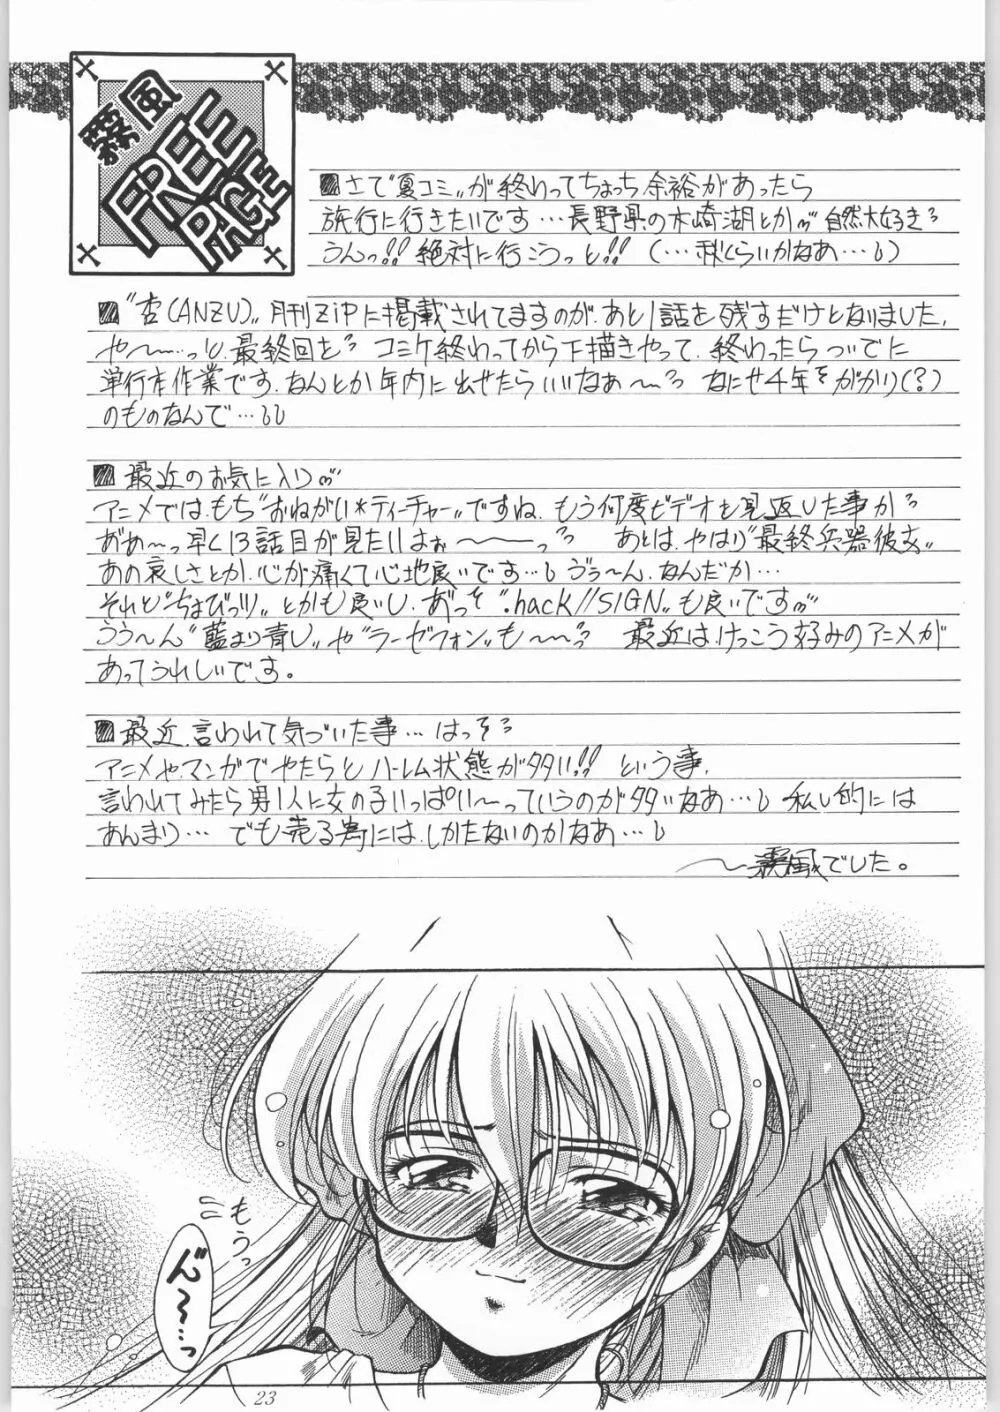 霧風
FREE
PAGE
■さて"夏コミ"が終わってちょっち余裕があったら
旅行に行きたいです…長野県の木崎湖とか 自然大好き
うんっ!!絶対に行こうっと!!(…秋くらいかなあ…)
■"杏(ANZU)"月刊ZiPに掲載されてますのが、あと1話を残すだけとなりました、
や〜…っし、最終回を コミケ終わってから下描きやって、終わったらついでに
単行本作業です、なんとか年内に出せたらいいなぁ〜 なにせ4年をがかり(?)
のものなんで…
■最近のお気に入り
アニメでは、もち"おねがい*ティーチャー"ですね、もう何度ビデオを見返した事か
ああ〜っ早く13話目が見たいはぉ〜っ あとは、やはり"最終兵器彼女"
あの哀しさとか、心が痛くて心地良いです… ううーん、なんだか…
それと"ちょびっツ"とかも良いし、あっそ".hack//SIGN"も良いです
ううーん"藍より青し"や"ラーゼフォン"も〜 最近は、けっこう好みのアニメが
あってうれしいです。
■最近、言われて気づいた事…はっそ
アニメやマンガでやたらとハーレム状態が多い!!という事、
言われてみたら男1人に女の子いっぱい〜っていうのが多いなあ… 私し的には
あんまり…でも売る為には、しかたないのかなあ…
〜霧風でした。
もうっ
ん〜…っ
23